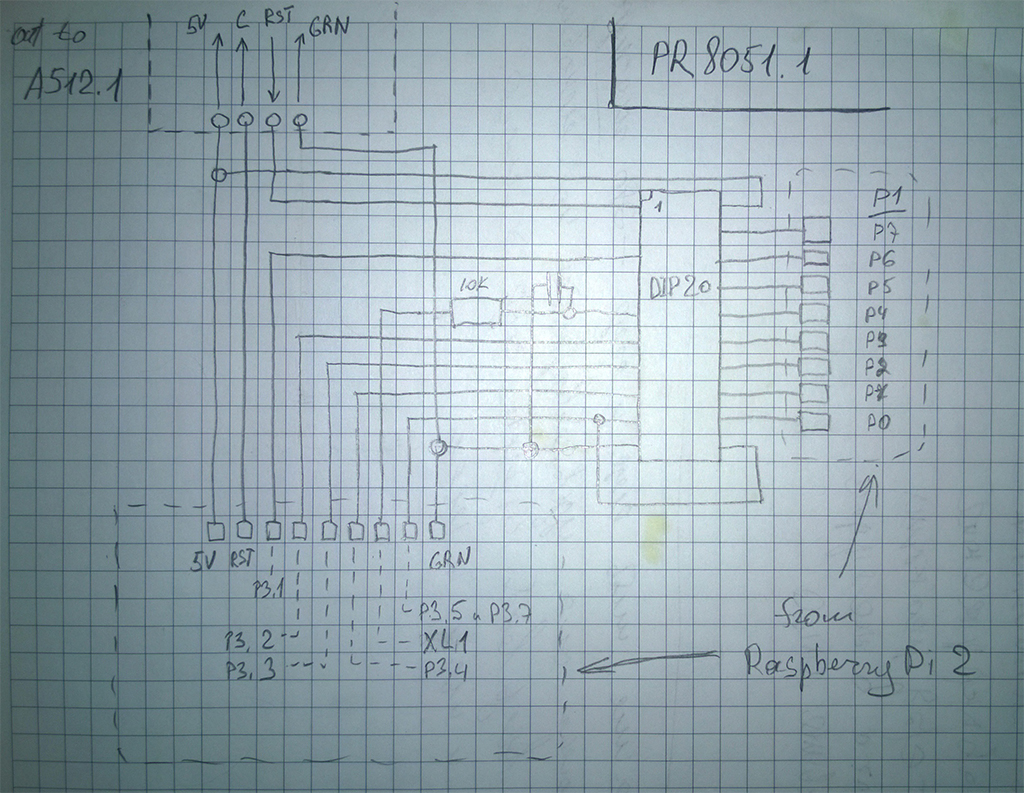 out to
A512.1
5V C RST GRN
PR 8051.1
1
DIP20
10K
P1
P7
P6
P5
P4
P3
P2
P1
P0
5V RST GRN
P3.1
P3.5 и P3.7
P3.2
XL1
P3.3
P3.4
from
Raspberry Pi 2